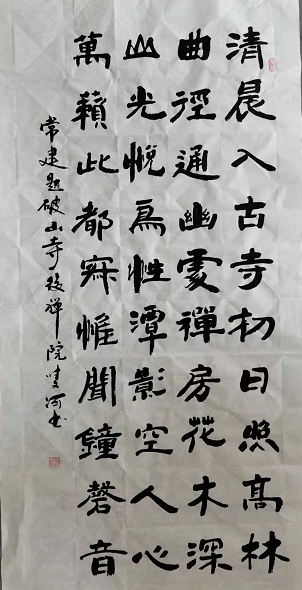 清晨入古寺初日照高林
曲徑通幽處禪房花木深
山光悅鳥性潭影空人心
萬籟此都寂惟聞鐘磬音
常建題破山寺後禪院 河書